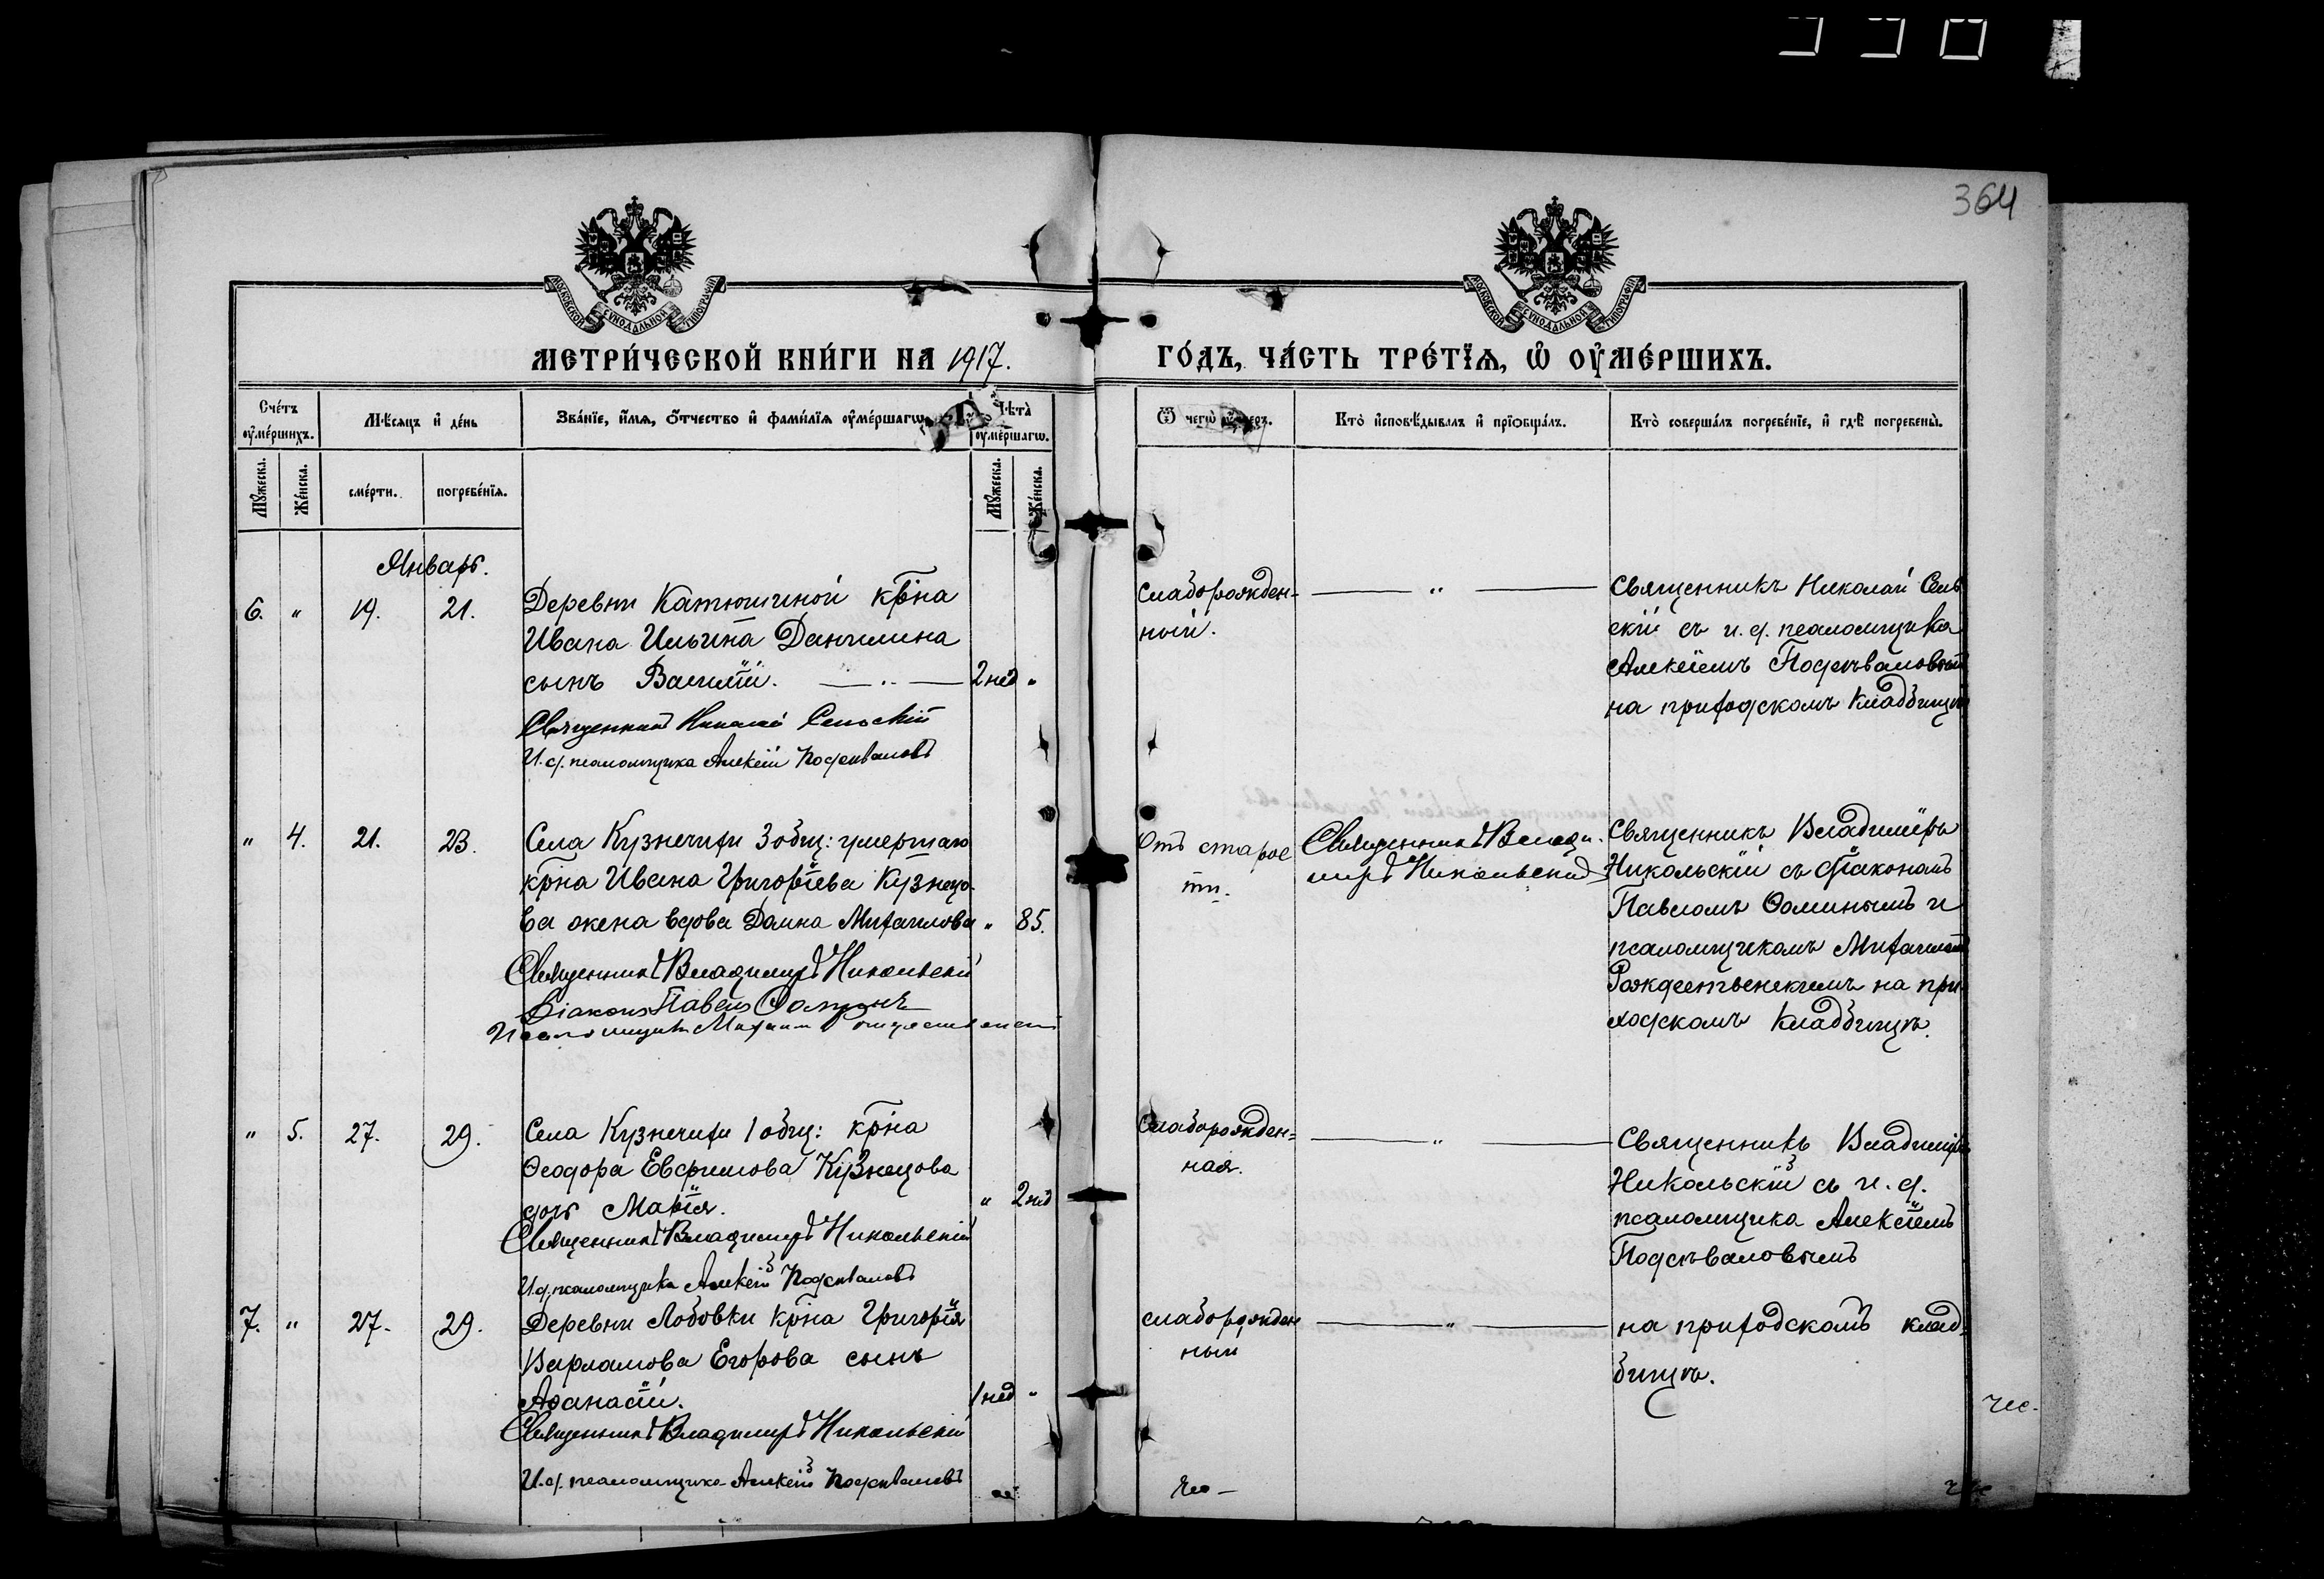 364
МОСКОВСКОЙ СУНОДАЛЬНОЙ ТИПОГРАФІИ
МОСКОВСКОЙ СУНОДАЛЬНОЙ ТИПОГРАФІИ
МЕТРИ́ЧЕСКОЙ КНИ́ГИ НА 1917.
ГО́ДЪ, ЧА́СТЬ ТРЕ́ТЇѦ, Ѡ҆ ОУ҆МЕ́РШИХЪ.
Сче́тъ оу҆ме́ршихъ.
Мѣ́сяцъ и҆ де́нь
Зва́нїе, и҆́мѧ, ѻ҆́тчество и҆ фами́лїѧ оу҆ме́ршагѡ
Лѣ́та̀ оу҆ме́ршагѡ.
Ѿ чегѡ̀ оу҆́меръ.
Кто̀ и҆сповѣ́дывалъ и҆ прїѡбща́лъ.
Кто̀ соверша́лъ погребе́нїе, и҆ гдѣ̀ погребены̀.
Мꙋ́жеска.
Же́нска.
сме́рти.
погребе́нїѧ.
Мꙋ́жеска.
Же́нска.
Январь.
6. " 19. 21.
Деревни Катюшиной крна
Ивана Ильина Данилина
сынъ Василій. 2 нед "
Священникъ Николай Сельскій
И. д. псаломщика Алексій Подсѣваловъ
Слаборожден=
ный.
"
Священникъ Николай Сель
скій съ и. д. псаломщика
Алексіемъ Подсѣваловымъ
на приходскомъ кладбищѣ
" 4. 21. 23.
Села Кузнечихи 3 общ: умершаго
крна Ивана Григоріева Кузнецо-
ва жена вдова Домна Михаилова " 85.
Священникъ Владимиръ Никольскій
Діаконъ Павелъ Ѳоминъ
Псаломщикъ Михаилъ Рождественскій
Отъ старос
ти.
Священникъ Влади-
миръ Никольскій
Священникъ Владиміръ
Никольскій съ діакономъ
Павломъ Ѳоминымъ и
псаломщикомъ Михаиломъ
Рождественскимъ на при
ходскомъ кладбищѣ.
" 5. 27. 29.
Села Кузнечихи 1 общ: крна
Ѳеодора Евфимова Кузнецова
дочь Марія. " 2 нед
Священникъ Владимиръ Никольскій
И. д. псаломщика Алексій Подсѣваловъ
Слаборожден=
ная.
"
Священникъ Владиміръ
Никольскій съ и. д.
псаломщика Алексіемъ
Подсѣваловымъ
7. " 27. 29.
Деревни Лобовки крна Григорія
Варламова Егорова сынъ
Аѳанасій. 1 нед "
Священникъ Владимиръ Никольскій
И. д. псаломщика Алексій Подсѣваловъ
слаборожден
ный
"
на приходскомъ клад-
бищѣ.